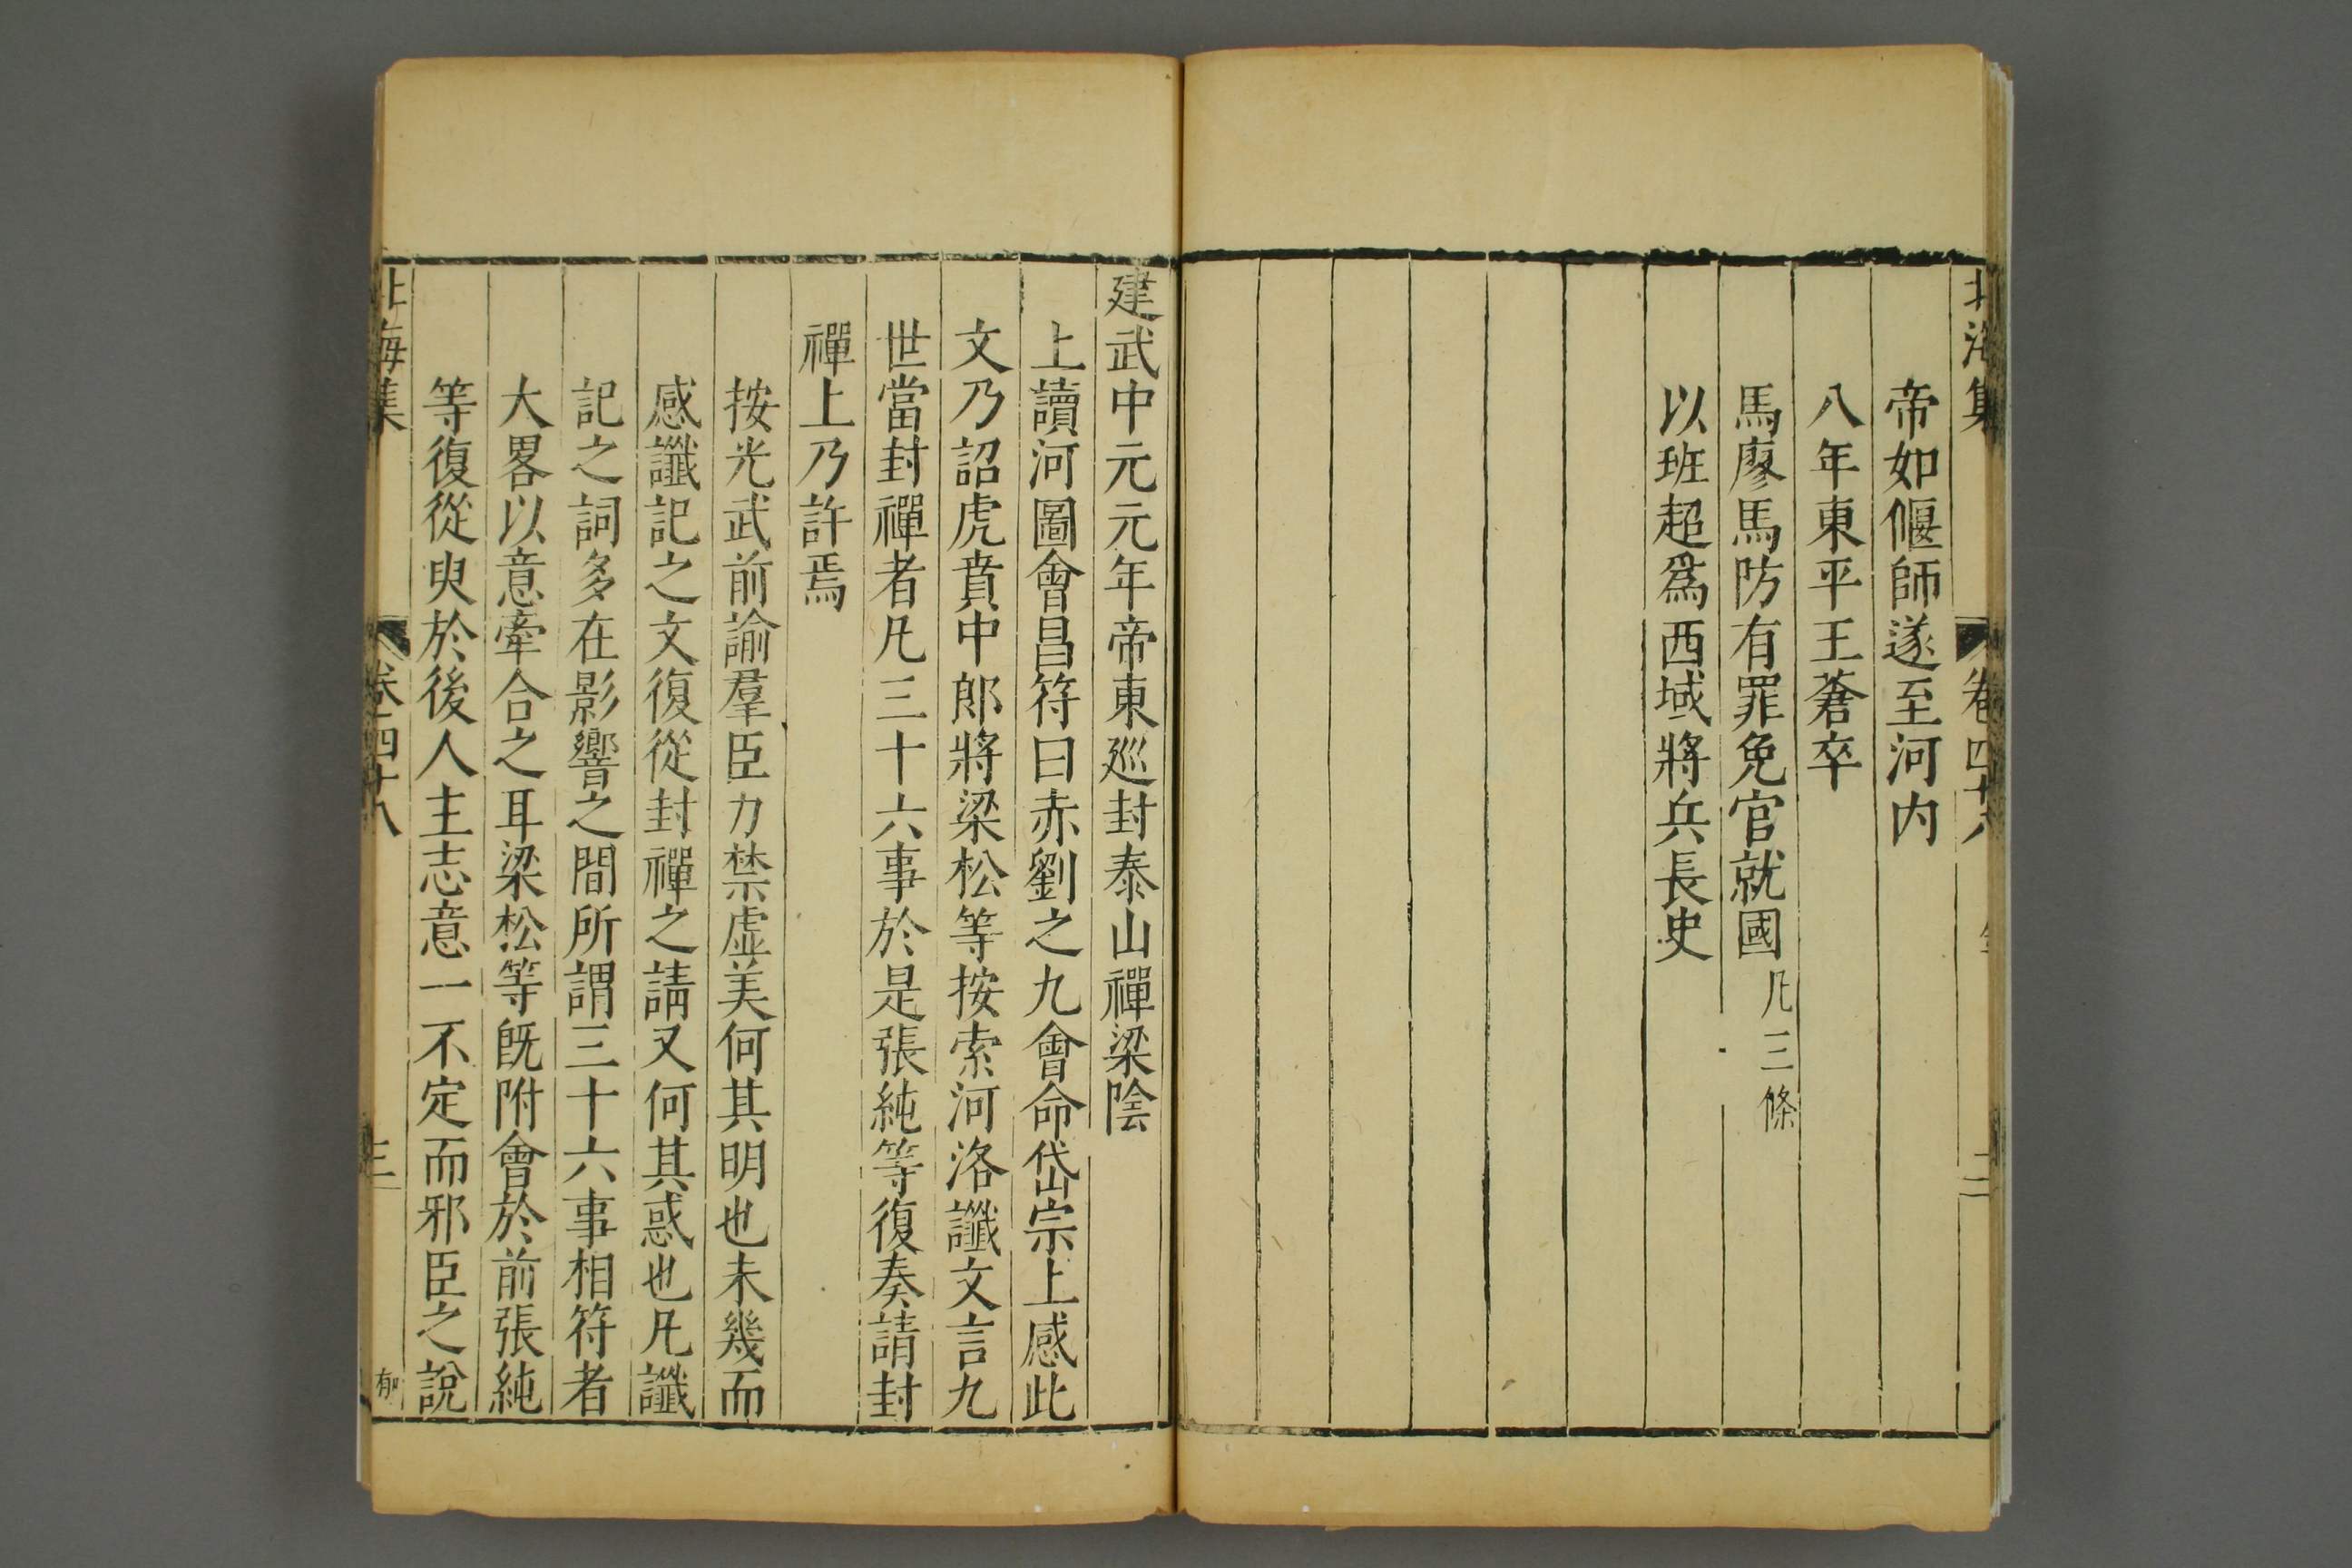 北海集 卷四十八 二
帝如偃師遂至河内
八年東平王蒼卒
馬廖馬防有罪免官就國凡三條
以班超爲西域將兵長史
建武中元元年帝東巡封泰山禪梁陰
上讀河圖會昌符曰赤劉之九會命岱宗上感此
文乃詔虎賁中郎將梁松等按索河洛讖文言九
世當封禪者凡三十六事於是張純等復奏請封
禪上乃許焉
按光武前諭羣臣力禁虛美何其明也未幾而
感讖記之文復從封禪之請又何其惑也凡讖
記之詞多在影響之間所謂三十六事相符者
大畧以意牽合之耳梁松等旣附會於前張純
等復從臾於後人主志意一不定而邪臣之說
北海集 卷四十八 三